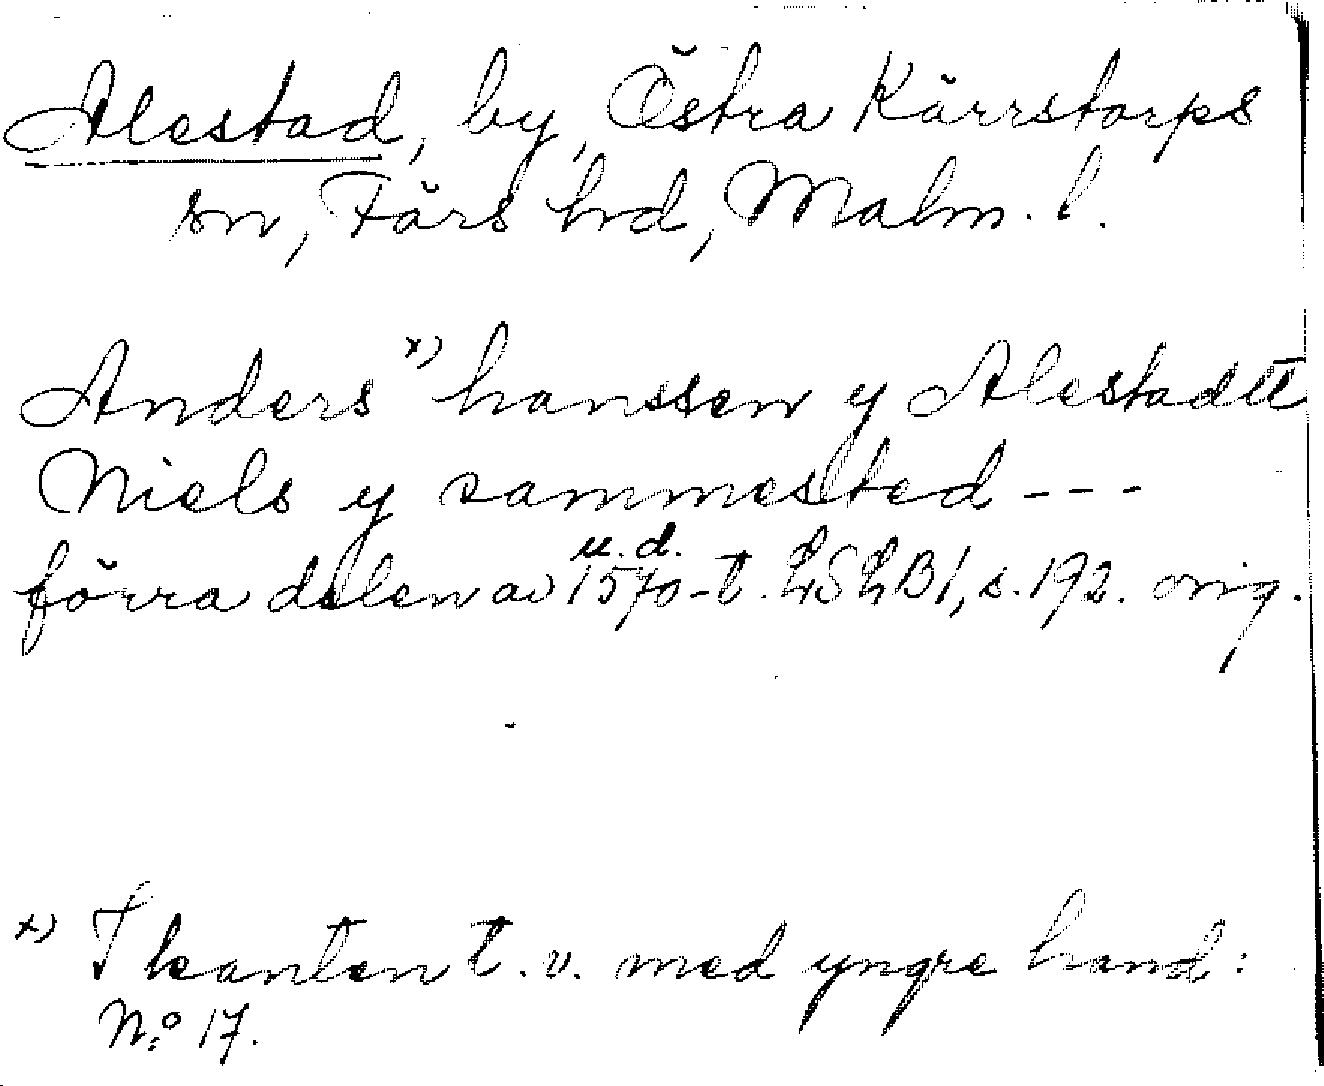 Alestad, by, Östra Kärrstorps
sn, Färs hd, Malm. l.
Anders x) hanssen y Alestadtt
Niels y sammested ---
u. d.
förra delen av 1570-t. LSLB1, s. 192. orig.
x) I kanten t. v. med yngre hand:
No 17.